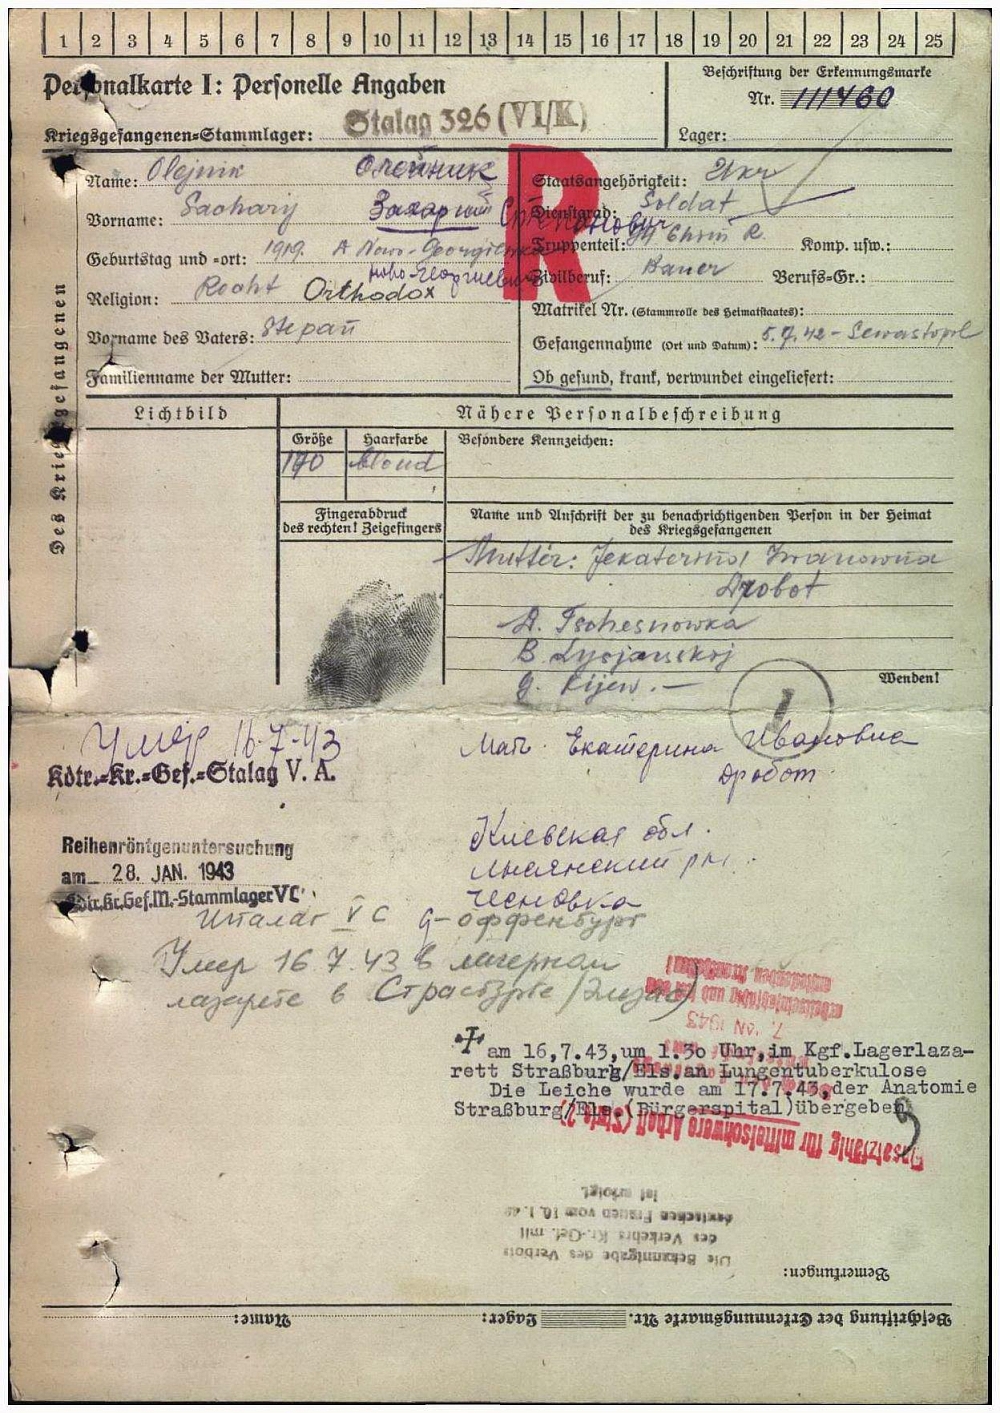 1 2 3 4 5 6 7 8 9 10 11 12 13 14 15 16 17 18 19 20 21 22 23 24 25
Personalkarte I: Personelle Angaben
Kriegsgefangenen=Stammlager: Stalag 326 (VI/K)
Beschriftung der Erkennungsmarke
Nr. 111460
Lager:
Des Kriegsgefangenen
R
Name: Olejnik Олейник
Vorname: Sachary Захарий Степанович
Geburtstag und =ort: 1919. Nowo-Georgiewka
ново-Георгиевка
Religion: Orthodox
Vorname des Vaters: Stepan
Familienname der Mutter:
Staatsangehörigkeit: Ukr
Dienstgrad: Soldat
Truppenteil: Komp. usw.:
Zivilberuf: Bauer Berufs-Gr.:
Matrikel Nr. (Stammrolle des Heimatstaates):
Gefangennahme (Ort und Datum): 5.7.42 - Sewastopol
Ob gesund, krank, verwundet eingeliefert:
Lichtbild
Nähere Personalbeschreibung
Größe Haarfarbe Besondere Kennzeichen:
170 blond
Fingerabdruck
des rechten! Zeigefingers
Name und Anschrift der zu benachrichtigenden Person in der Heimat
des Kriegsgefangenen
Mutter: Jekaterina Iwanowna
Drobot
D. Tschesnowka
B. Lysjanskoj
G. Kijew. —
Wenden!
1
Умер 16-7-43
Kdtr.-Kr.=Gef.=Stalag V. A.
Мать. Екатерина Ивановна
Дробот
Reihenröntgenuntersuchung
am 28. JAN. 1943
Kdtr.Kr.Gef.M.-Stammlager VC
Киевская обл.
Лысянский рн.
Чесновка
Шталаг V C г-Оффенбург
Умер 16 7.43 в лагерном
лазарете в Страсбурге (Эльзас)
arbeitseinsatzfähig und
7. JAN 1943
am 16,7.43,um 1.30 Uhr,im Kgf.Lagerlaza-
rett Straßburg/Els.an Lungentuberkulose
Die Leiche wurde am 17.7.43,der Anatomie
Straßburg/Els.(Bürgerspital)übergeben
Einsatzfähig für mittelschwere Arbeit (Stufe 2)
Die Bekanntgabe des Verbots
des Verkehrs Kr.-Gef. mit
deutschen Frauen vom 10.1.40
ist erfolgt.
Bemerkungen:
Beschriftung der Erkennungsmarke Nr. Lager: Name: